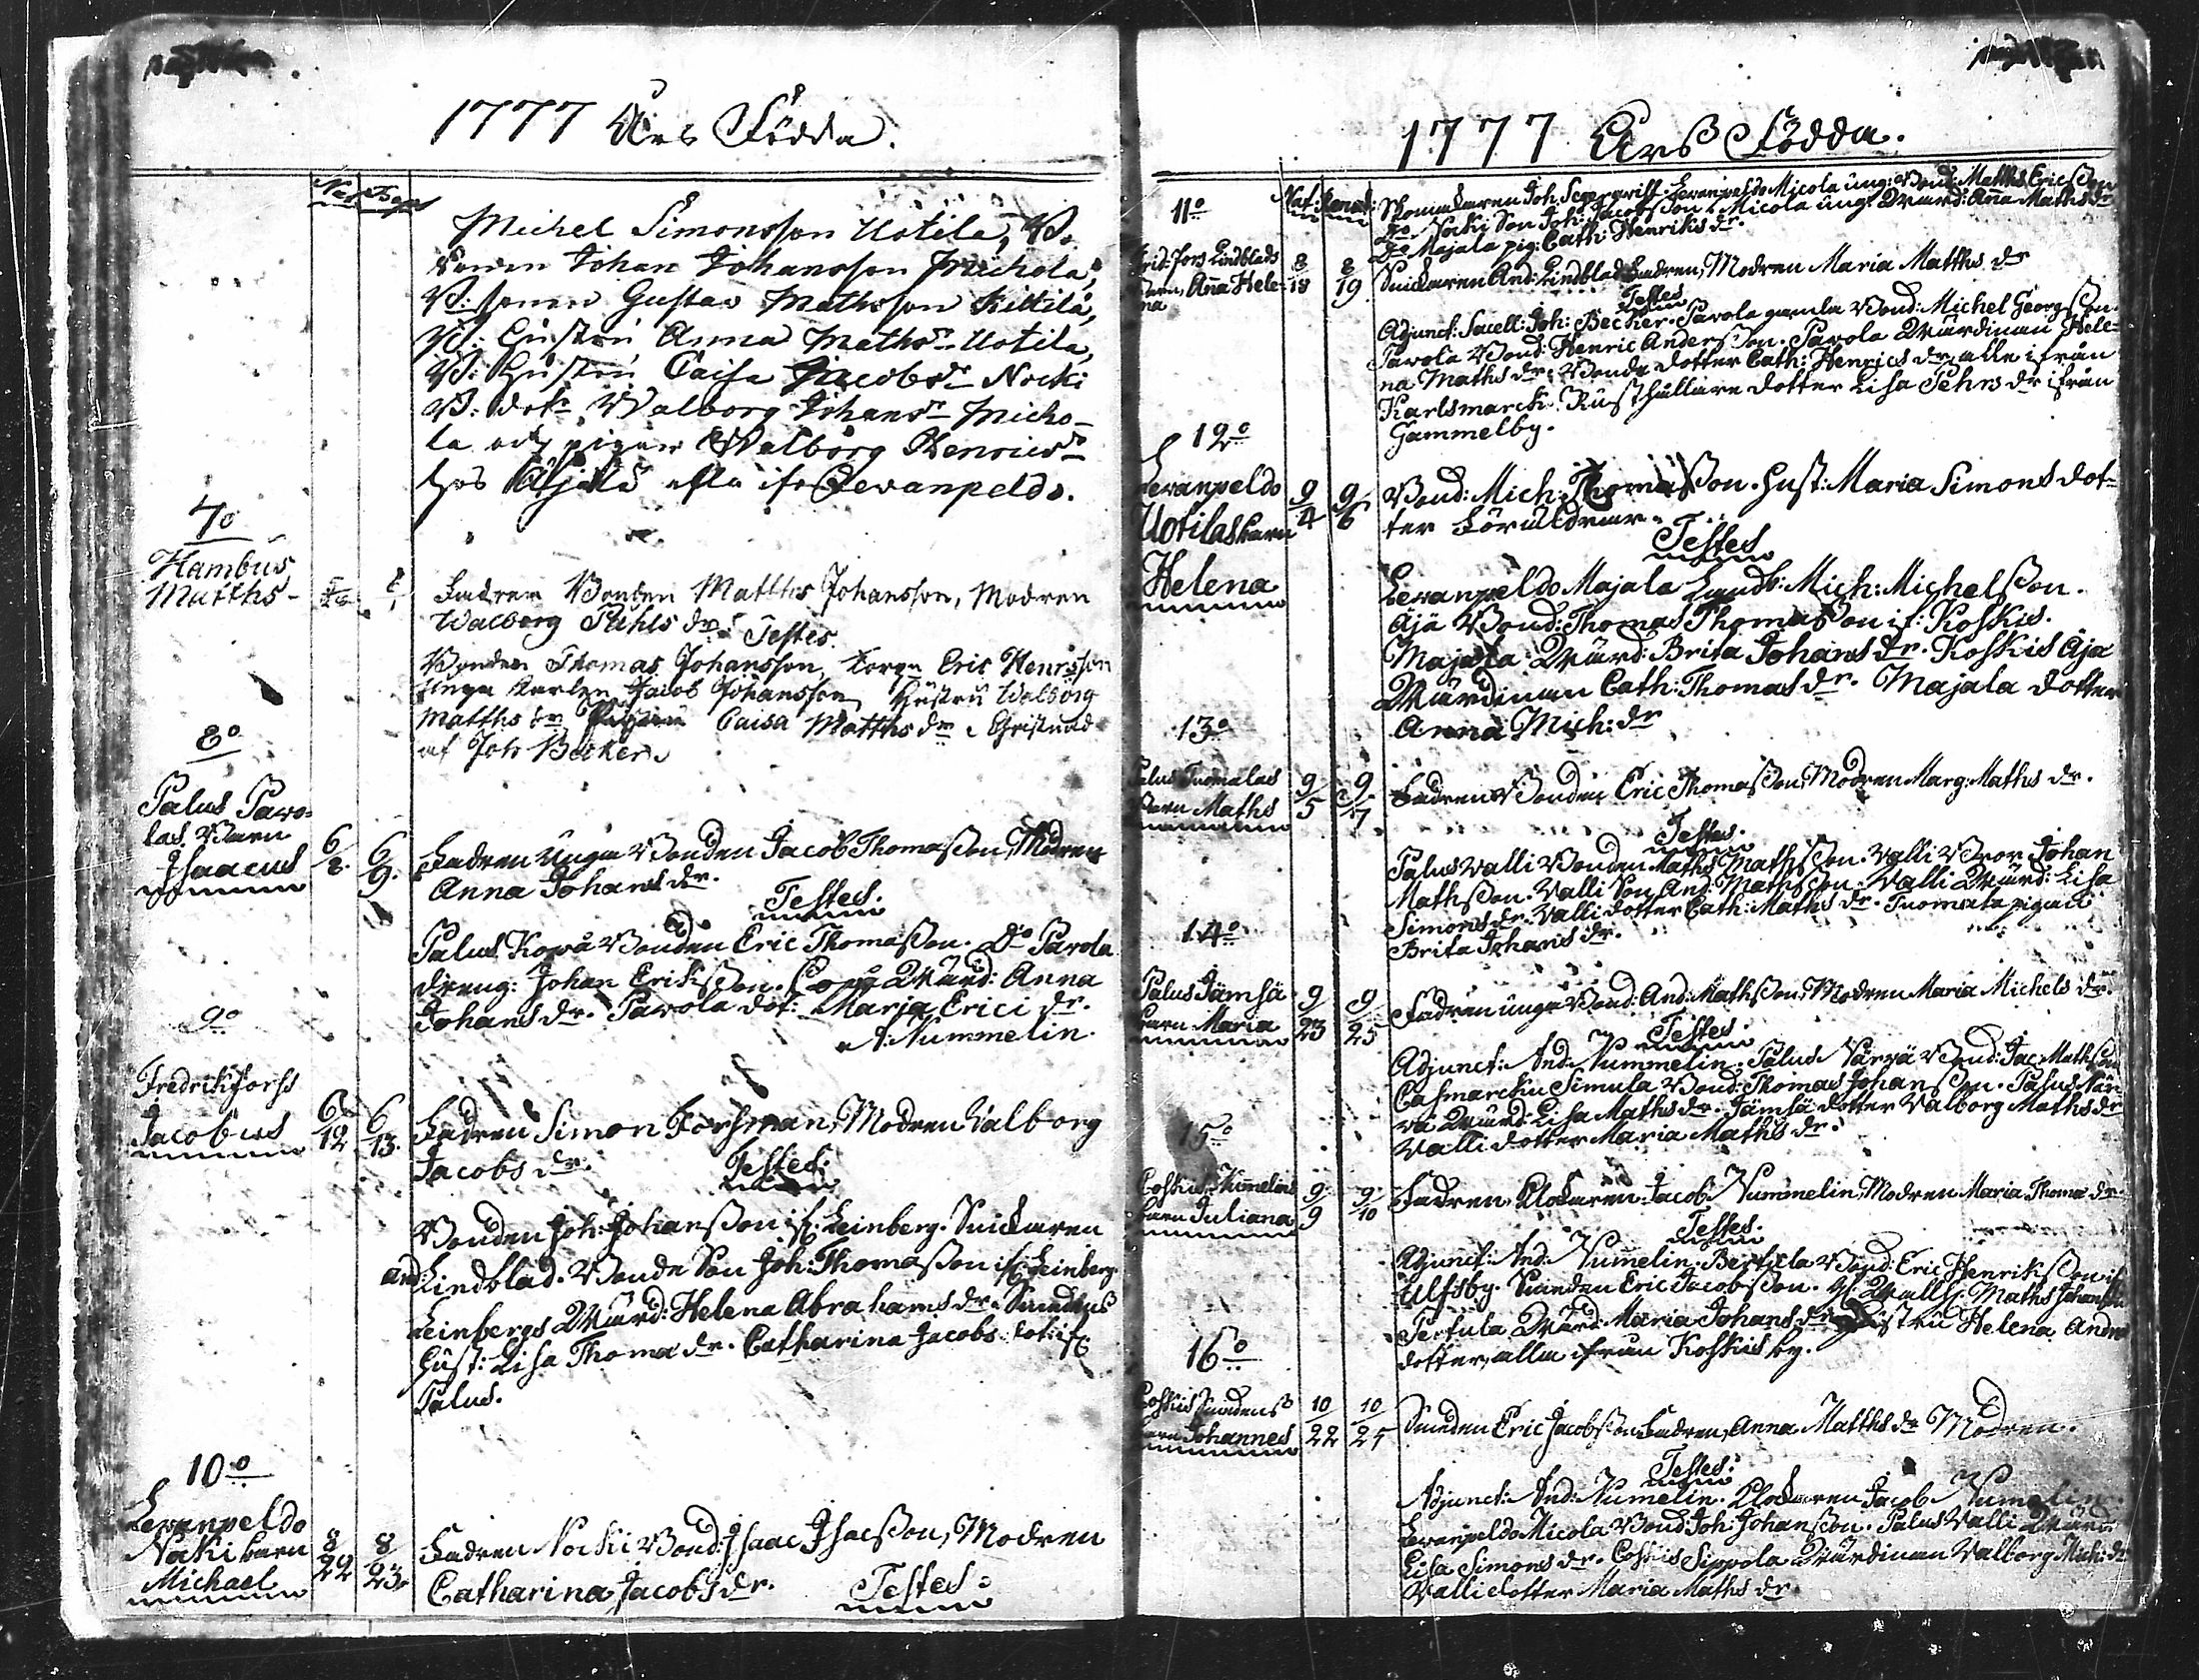 1777 Års Födda.
Nat. Ren.
Michel Simonsson Uotila, B.
sonen Johan Johansson Michola,
B: sonen Gustav Mathsson Kittilä,
B: Hustru Anna Maths dr Uotila,
B: Hustru Caisa Jacobs dr Nocki
B: dotr Walborg Johans dr Micho-
la och pigan Walborg Henrics dr
hos Äijälä alla if: Levanpeldo.
7o
Hambus
Matths
Fadren Bonden Matths Johansson, Modren
Walborg Påhls dr. Testes.
Bonden Thomas Johansson, Eric Henrsson
Unga Karlen Jacob Johansson, Hustru Walborg
Matths dr Pigan Caisa Matths dr. Christnad
af Joh Becker.
8o
Palus Pavo-
las Barn
Isaacus
6/8. 6/9.
Fadren Unga Bonden Jacob Thomasson, Modren
Anna Johans dr.
Testes.
Palus Kova Bonden Eric Thomasson. Do Pavola
dreng: Johan Eriksson. Kova Wärd: Anna
Johans dr. Pavola dot: Maria Erici dr.
A: Nummelin.
9o
Fredriksforss
Jacobus
6/12 6/13.
Fadren Simon Forsman, Modren Valborg
Jacobs dr.
Testes.
Bonden Joh: Johansson if: Leinberg. Snickaren
And: Lindblad. Bonde Son Joh: Thomasson if: Leinberg
Leinbergs Wärd: Helena Abrahams dr. Smedens
Hust: Lisa Thomæ dr. Catharina Jacobs dot: if:
Palus.
10o
Levanpeldo
Nocki barn
Michael
8/22 8/23.
Fadren Nocki Bond: Isaac Isacsson, Modren
Catharina Jacobs dr.
Testes:
1777 Års Födda.
Nat: Renat:
11o
Skomakaren Joh: Levanpeldo Micola ung: Bond: Matths Ericsson
Do Nocki Son Joh: Jacobsson. Micola ung: Wärd: Anna Maths dr
Do Majala pig: Cath: Henriks dr.
Frid: fors Lindblads
barn, Anna Hele-
na
8/18 8/19
Snickaren And: Lindblad Fadren, Modren Maria Matths dr
Testes
Adjunct: Sacell: Joh: Becker. Pavola gamla Bond: Michel Georgsson.
Pavola Bond: Henric Andersson. Pavola Wärdinnan Hele-
na Maths dr. Bonde dotter Cath: Henrics dr, alle ifrån
Karlsmarck. Rusthållare dotter Lisa Pehrs dr ifrån
Gammelby.
12o
Levanpeldo
Uotilas barn
Helena
9/4 9/6
Bond: Mich: Thomasson. Hust: Maria Simons dot-
ter Föräldrar.
Testes
Levanpeldo Majala Landb: Mich: Michelsson.
Äjä Bond: Thomas Thomasson if: Koskis.
Majala Wärd: Brita Johans dr. Koskis Äja
Wärdinnan Cath: Thomas dr. Majala dotter
Anna Mich: dr
13o
Palus Tuomalas
barn Maths
9/5 9/7.
Fadren Bonden Eric Thomasson, Modren Marg: Maths dr.
Testes.
Palus Valli Bonden Maths Mathsson. Valli Bror Johan
Mathsson. Valli Son And: Mathsson. Valli Wärd: Lisa
Simons dr. Valli dotter Cath: Maths dr. Tuomala pigan
Brita Johans dr.
14o
Palus Jämsä
barn Maria
9/23 9/25
Fadren unga Bond: And: Mathsson, Modren Maria Michels dr.
Testes.
Adjunct: And: Nummelin. Palus Närvä Bond: Jac: Mathsson
Casmarcku Simula Bond: Thomas Johansson. Palus När-
vä Wärd: Lisa Maths dr. Jämsä dotter Valborg Maths dr
Valli dotter Maria Maths dr.
15o
Coskis Numelins
barn Juliana
9/9 9/10
Fadren, Klockaren: Jacob Nummelin, Modren Maria Thomæ dr.
Testes.
Adjunct: And: Numelin. Bertula Bond: Eric Henriksson if:
Ulfsby. Smeden Eric Jacobsson. Maths Johansson
Pertula Wärd: Maria Johans dr Hustru Helena Anders
dotter, alla ifrån Koskis by.
16o
Coskis Smedens
barn Johannes
10/22 10/25
Smeden Eric Jacobsson Fadren, Anna Matths dr Modren.
Testes:
Adjunct: And: Numelin. Klockaren Jacob Numelin.
Levanpeldo Micola Bond Joh: Johansson. Palus Valli Wärd:
Lisa Simons dr. Coskis Sippola Wärdinnan Valborg Mich: dr
Valli dotter Maria Maths dr.